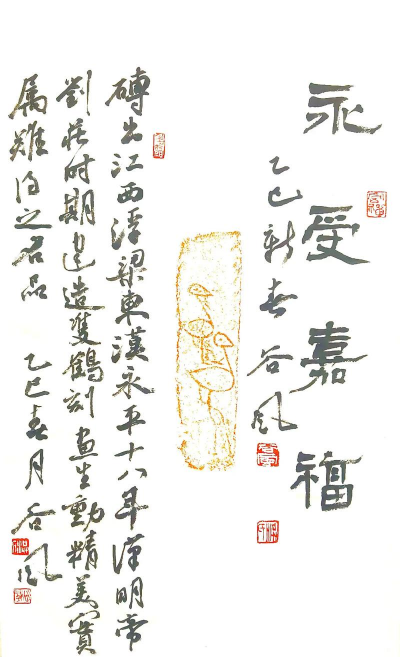 永受嘉福
乙巳新春谷风
磚出江西浮梁東漢永平十八年漢明帝
劉莊时期建造雙鶴刻画生動精美實
属难得之名品 乙巳春月谷风